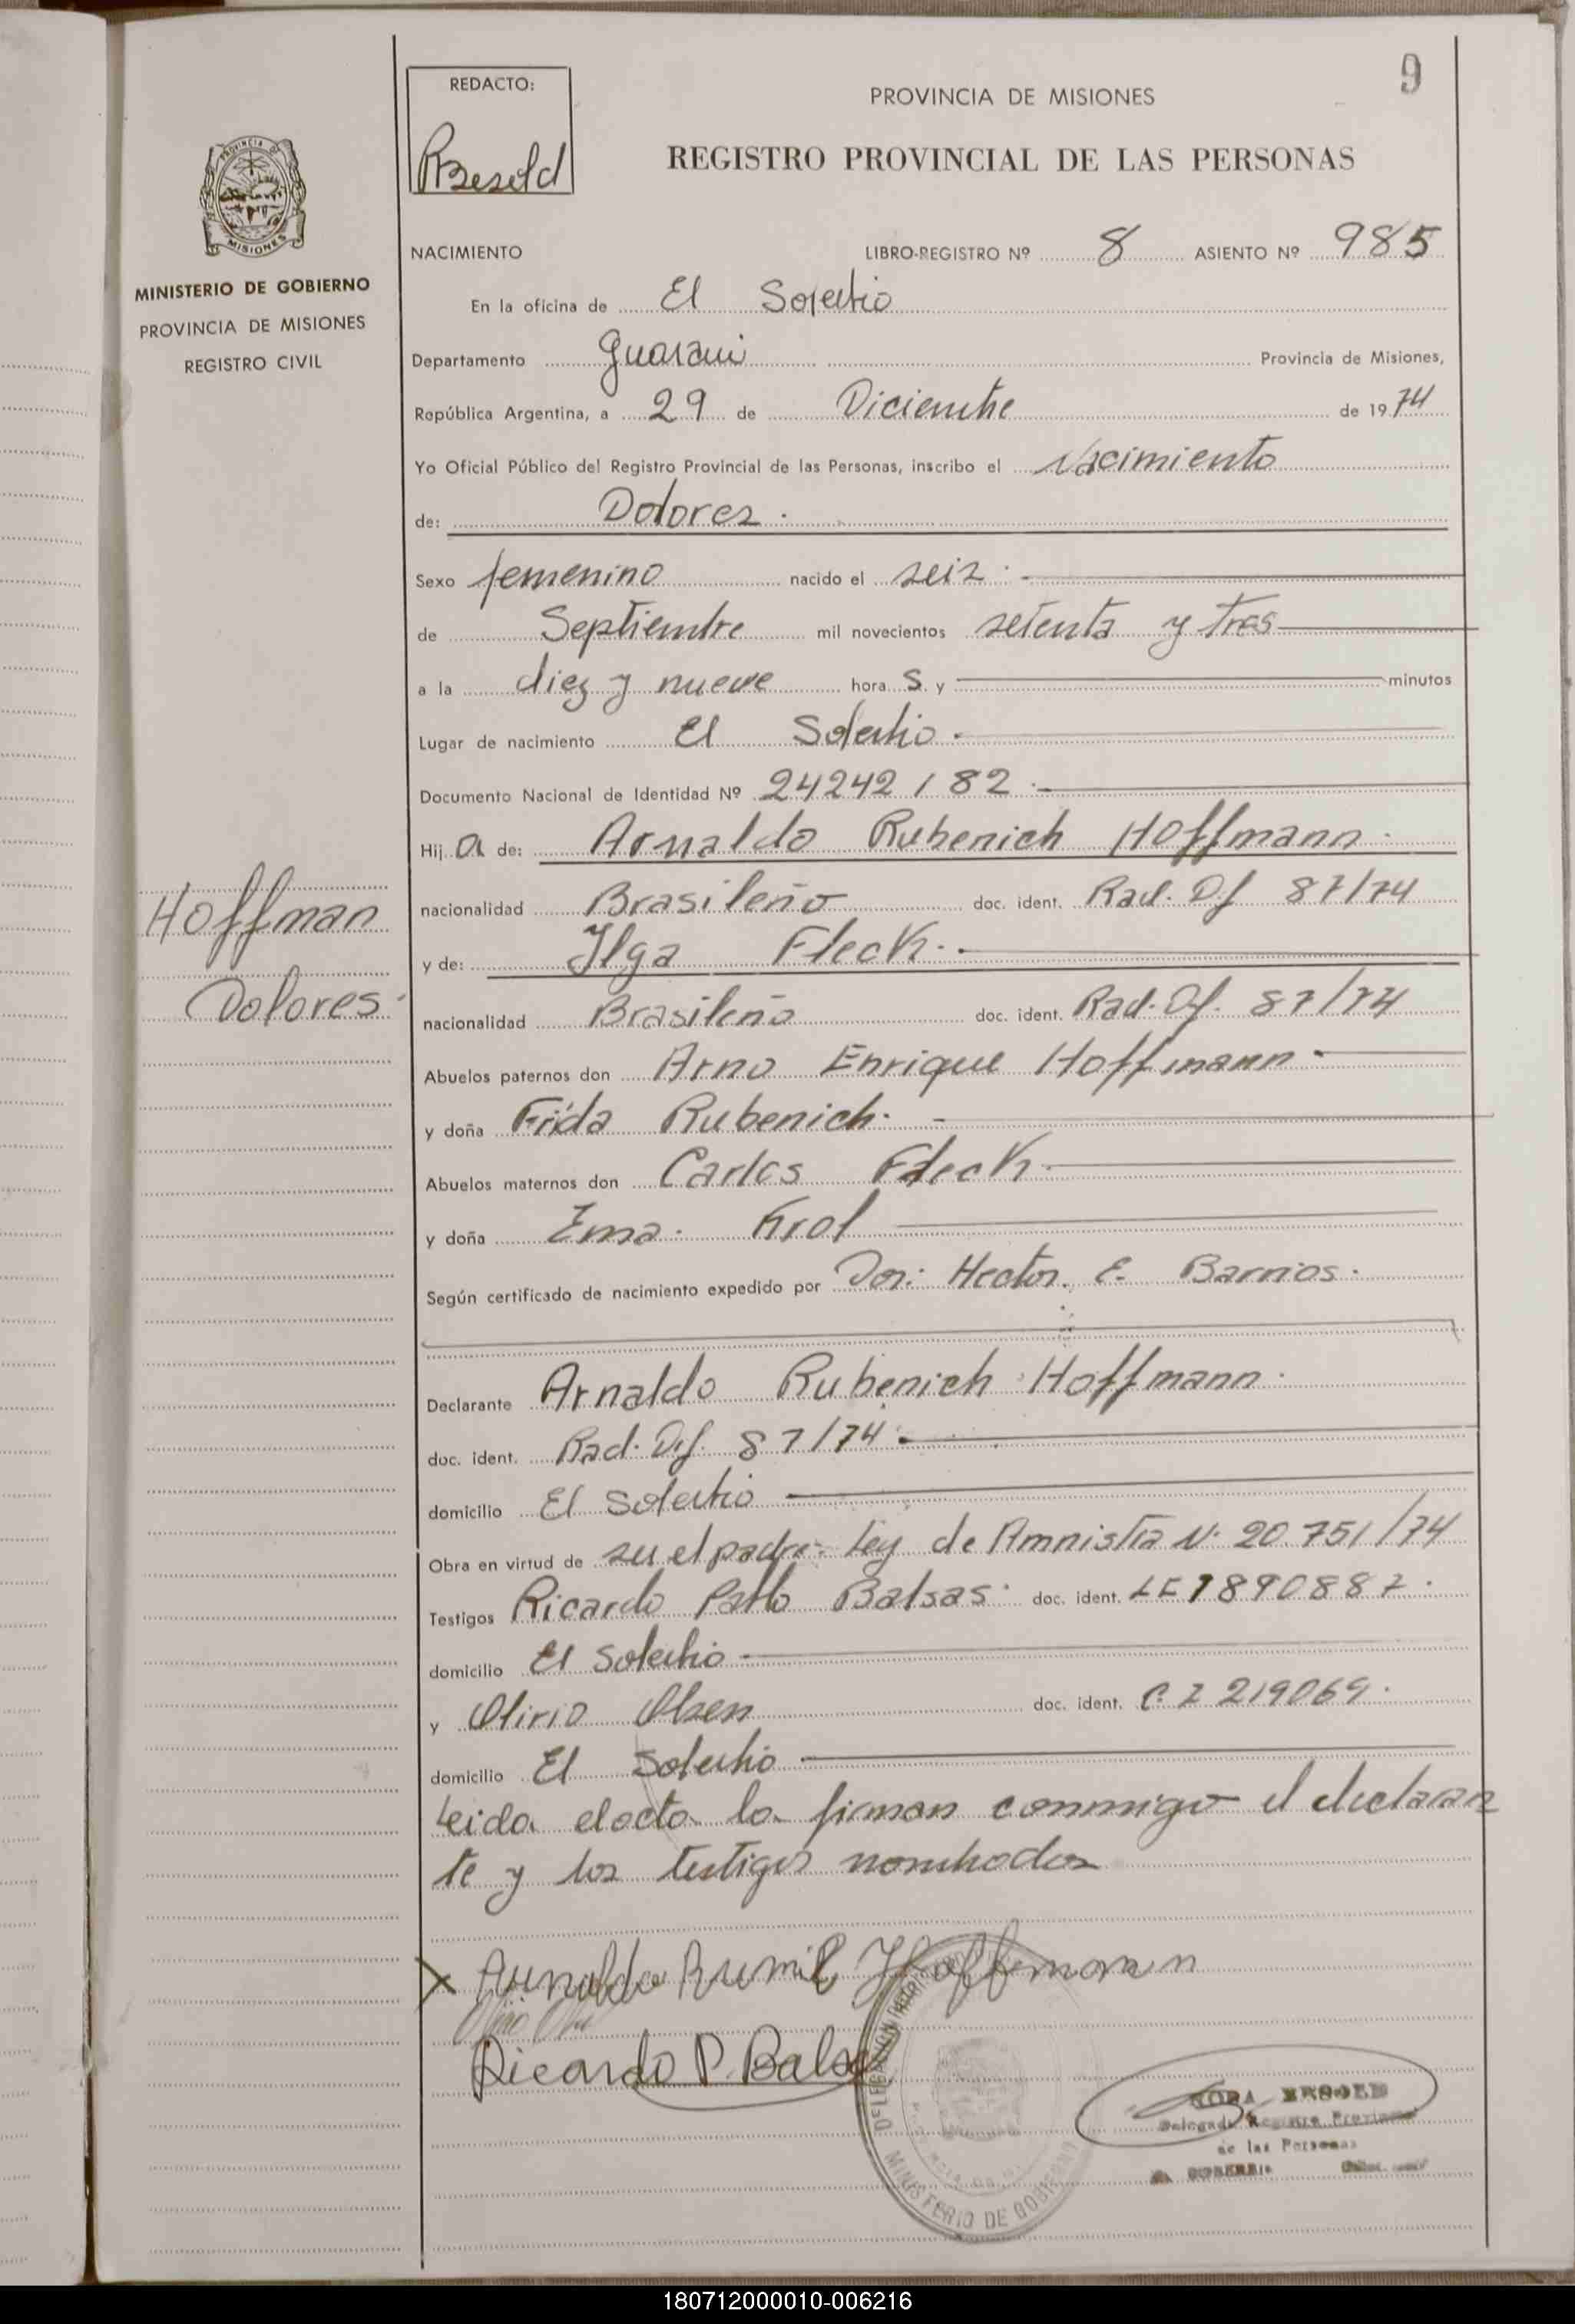 9
REDACTO:
PROVINCIA DE MISIONES
REGISTRO PROVINCIAL DE LAS PERSONAS
PROVINCIA DE
MISIONES
MINISTERIO DE GOBIERNO
PROVINCIA DE MISIONES
REGISTRO CIVIL
NACIMIENTO LIBRO-REGISTRO Nº 8 ASIENTO Nº 985
En la oficina de El Soberbio
Departamento Guarani Provincia de Misiones,
República Argentina, a 29 de Diciembre de 1974
Yo Oficial Público del Registro Provincial de las Personas, inscribo el Nacimiento
de: Dolores.
Sexo femenino nacido el seis.
de Septiembre mil novecientos setenta y tres
a la diez y nueve hora s y minutos
Lugar de nacimiento El Soberbio.
Documento Nacional de Identidad Nº 24242182.
Hij a de: Arnaldo Rubenich Hoffmann.
nacionalidad Brasileño doc. ident. Rad. Df 87/74
y de: Ilga Fleck.
nacionalidad Brasileña doc. ident. Rad. Df. 87/74
Hoffman
Dolores
Abuelos paternos don Arno Enrique Hoffmann
y doña Frida Rubenich.
Abuelos maternos don Carlos Fleck.
y doña Ema. Krol
Según certificado de nacimiento expedido por Don: Hector. E. Barrios.
Declarante Arnaldo Rubenich Hoffmann.
doc. ident. Rad. Df. 87/74
domicilio El Soberbio
Obra en virtud de ser el padre- Ley de Amnistia N. 20.751/74
Testigos Ricardo Pablo Balsas. doc. ident. LE 7890887.
domicilio El Soberbio
y Olirio Olsen doc. ident. C. I 219069.
domicilio El Soberbio
Leida el acta la firman conmigo el declaran
te y los testigos nombrados
Ricardo P. Balsa
DELEGACION
MINISTERIO DE GOBIERNO
Registro Provincial
de las Personas
180712000010-006216